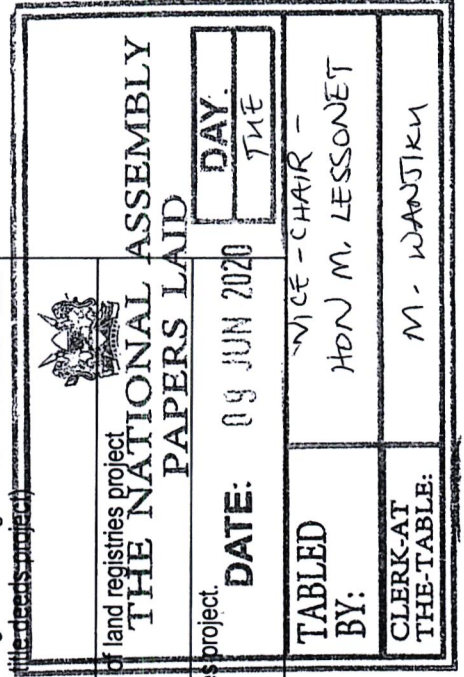 title deeds project)
of land registries project
THE NATIONAL ASSEMBLY
PAPERS LAID
s project.
DATE: 09 JUN 2020
DAY.
TUE
TABLED BY:
VICE-CHAIR -
HON M. LESSONET
CLERK-AT
THE-TABLE:
M. WANJIKU